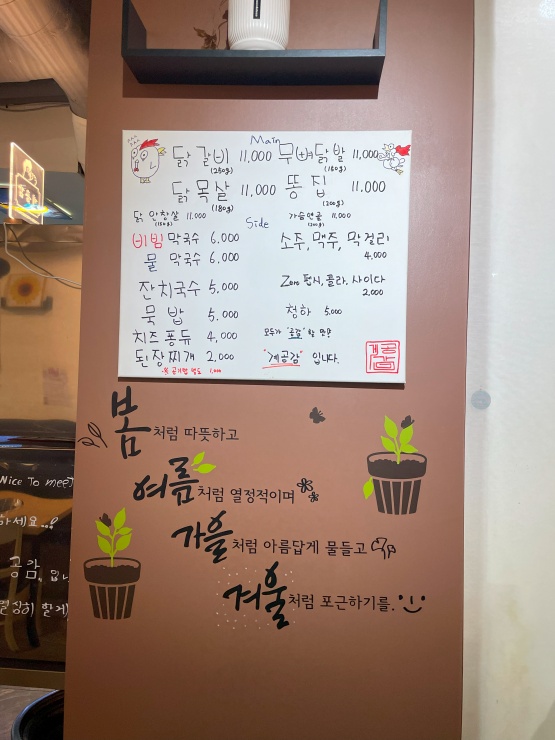 Main
닭갈비 11,000 무뼈닭발 11,000
(250g) (180g)
닭목살 11,000 똥집 11,000
(180g) (200g)
닭 안창살 11,000 가슴연골 11,000
Side
비빔 막국수 6,000
물 막국수 6,000
잔치국수 5,000
묵밥 5,000
치즈퐁듀 4,000
된장찌개 2,000
※ 공기밥 별도 1,000
소주, 맥주, 막걸리
4,000
Zero 펩시, 콜라, 사이다
2,000
청하 5,000
모두가 "공감" 할 맛!
"계공감" 입니다.
계공감
봄처럼 따뜻하고
여름처럼 열정적이며
가을처럼 아름답게 물들고
겨울처럼 포근하기를.
Nice To meet
하세요..!
공감, 입니
열심히 할게